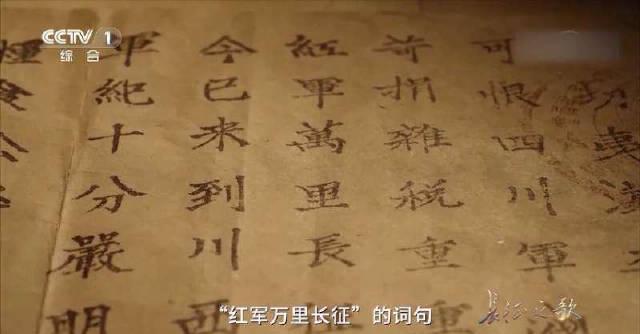 CCTV 1
综合
夷
可恨四川軍
苛捐雜稅重重
紅軍萬里長
今已來到川西
軍紀十分嚴明
糧食
“红军万里长征”的词句
長征之歌